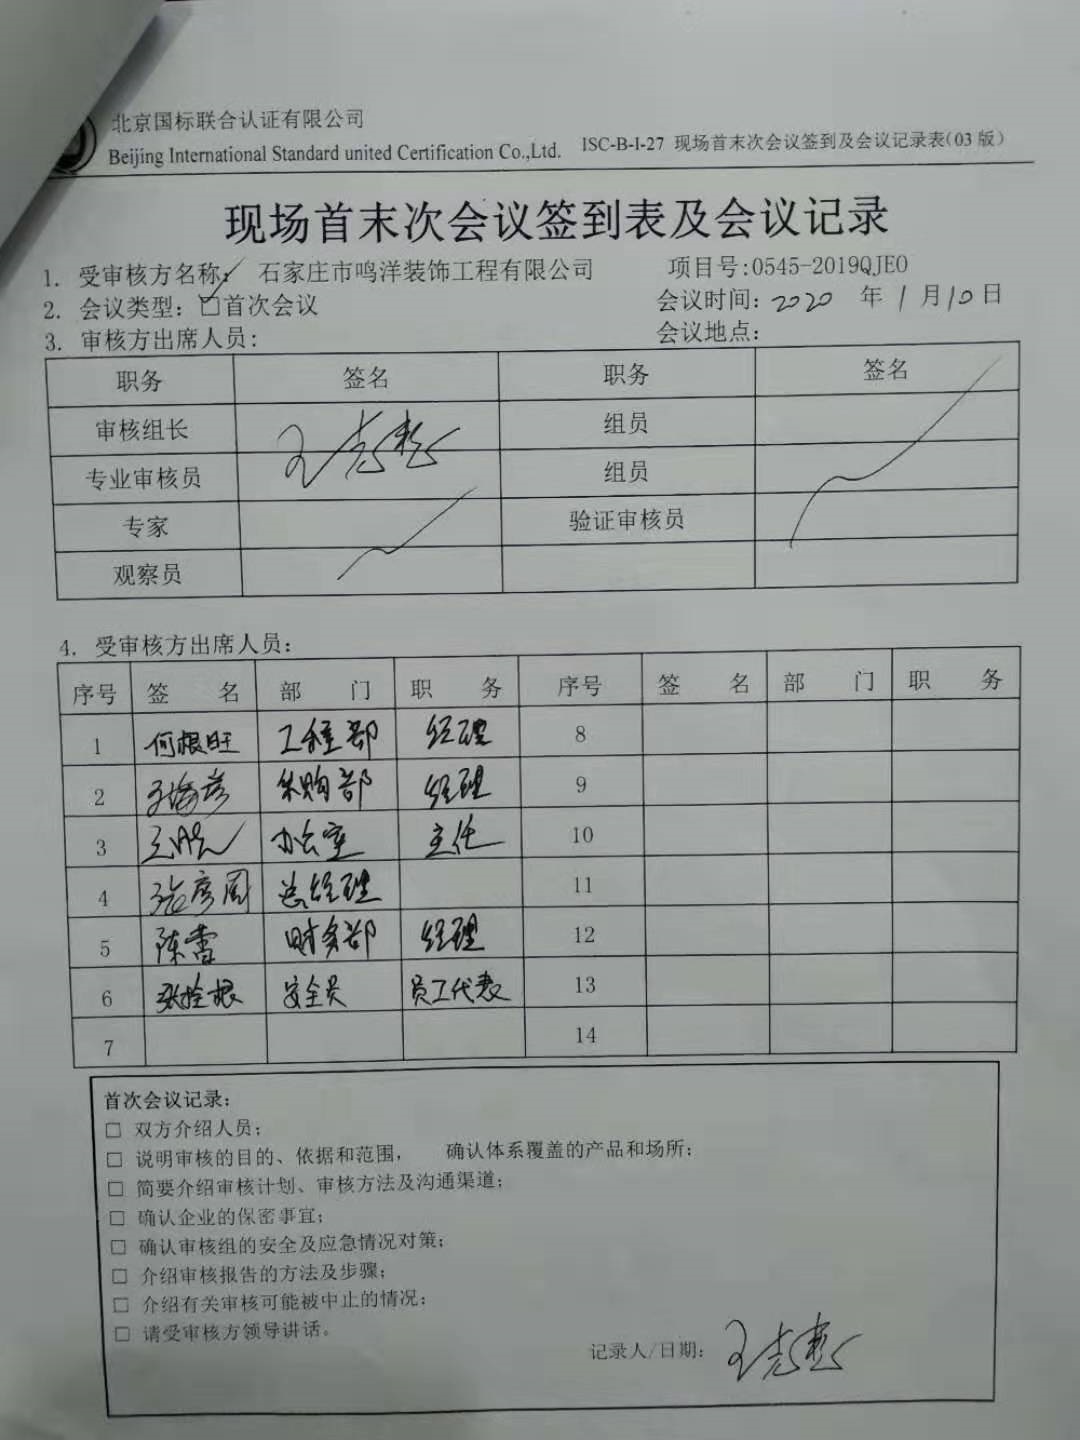 北京国标联合认证有限公司
Beijing International Standard united Certification Co.,Ltd. ISC-B-I-27 现场首末次会议签到及会议记录表(03 版)
现场首末次会议签到表及会议记录
1. 受审核方名称: 石家庄市鸣洋装饰工程有限公司 项目号:0545-2019QJEO
2. 会议类型: □首次会议 会议时间: 2020 年 1 月 10 日
3. 审核方出席人员: 会议地点:
职务 签名 职务 签名
审核组长 组员
专业审核员 组员
专家 验证审核员
观察员
4. 受审核方出席人员:
序号 签 名 部 门 职 务 序号 签 名 部 门 职 务
1 何根旺 工程部 经理 8
2 采购部 经理 9
3 办公室 主任 10
4 张彦周 总经理 11
5 陈雷 财务部 经理 12
6 张拴根 安全员 员工代表 13
7 14
首次会议记录:
□ 双方介绍人员;
□ 说明审核的目的、依据和范围, 确认体系覆盖的产品和场所;
□ 简要介绍审核计划、审核方法及沟通渠道;
□ 确认企业的保密事宜;
□ 确认审核组的安全及应急情况对策;
□ 介绍审核报告的方法及步骤;
□ 介绍有关审核可能被中止的情况;
□ 请受审核方领导讲话。
记录人/日期: